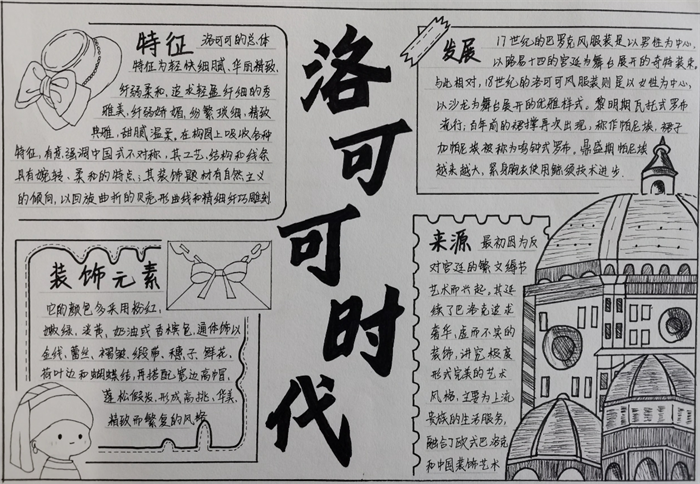 洛可可时代
特征
洛可可的总体
特征为轻快细腻、华丽精致、
纤弱柔和、追求轻盈纤细的秀
雅美，纤弱娇媚，纷繁琐细，精致
典雅，甜腻温柔，在构图上吸收各种
特征，有意强调中国式不对称，其工艺、结构和线条
具有婉转、柔和的特点；其装饰题材有自然主义
的倾向，以回旋曲折的贝壳形曲线和精细纤巧雕刻
发展
17世纪的巴罗克风服装是以男性为中心，
以路易十四的宫廷为舞台展开的奇特装束，
与此相对，18世纪的洛可可风服装则是以女性为中心，
以沙龙为舞台展开的优雅样式。黎明期瓦托式罗布
流行；百年前的裙撑再次出现，称作帕尼埃，裙子
加帕尼埃被称为吊钟式罗布，鼎盛期帕尼埃
越来越大，紧身胸衣使用鲸须技术进步
装饰元素
它的颜色多采用粉红、
嫩绿、淡黄、奶油或香槟色，通体饰以
金线、蕾丝、褶皱、缎带、穗子、鲜花、
荷叶边和蝴蝶结，再搭配宽边高帽、
蓬松假发，形成高挑、华美、
精致而繁复的风格
来源
最初因为反
对宫廷的繁文缛节
艺术而兴起，其延
续了巴洛克追求
奢华、虚而不实的
装饰，讲究极度
形式完美的艺术
风格，主要为上流
贵族的生活服务，
融合了欧式巴洛克
和中国装饰艺术